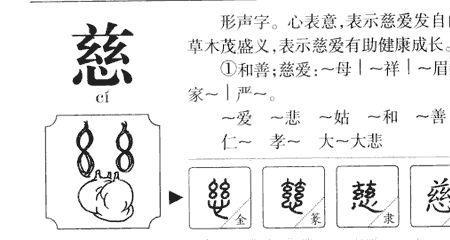 慈
cí
形声字。心表意,表示慈爱发自
草木茂盛义,表示慈爱有助健康成长。
①和善;慈爱:~母|~祥|~眉
家~|严~。
~爱 ~悲 ~姑 ~和 ~善
仁~ 孝~ 大~大悲
慈 金 慈 篆 慈 隶 慈